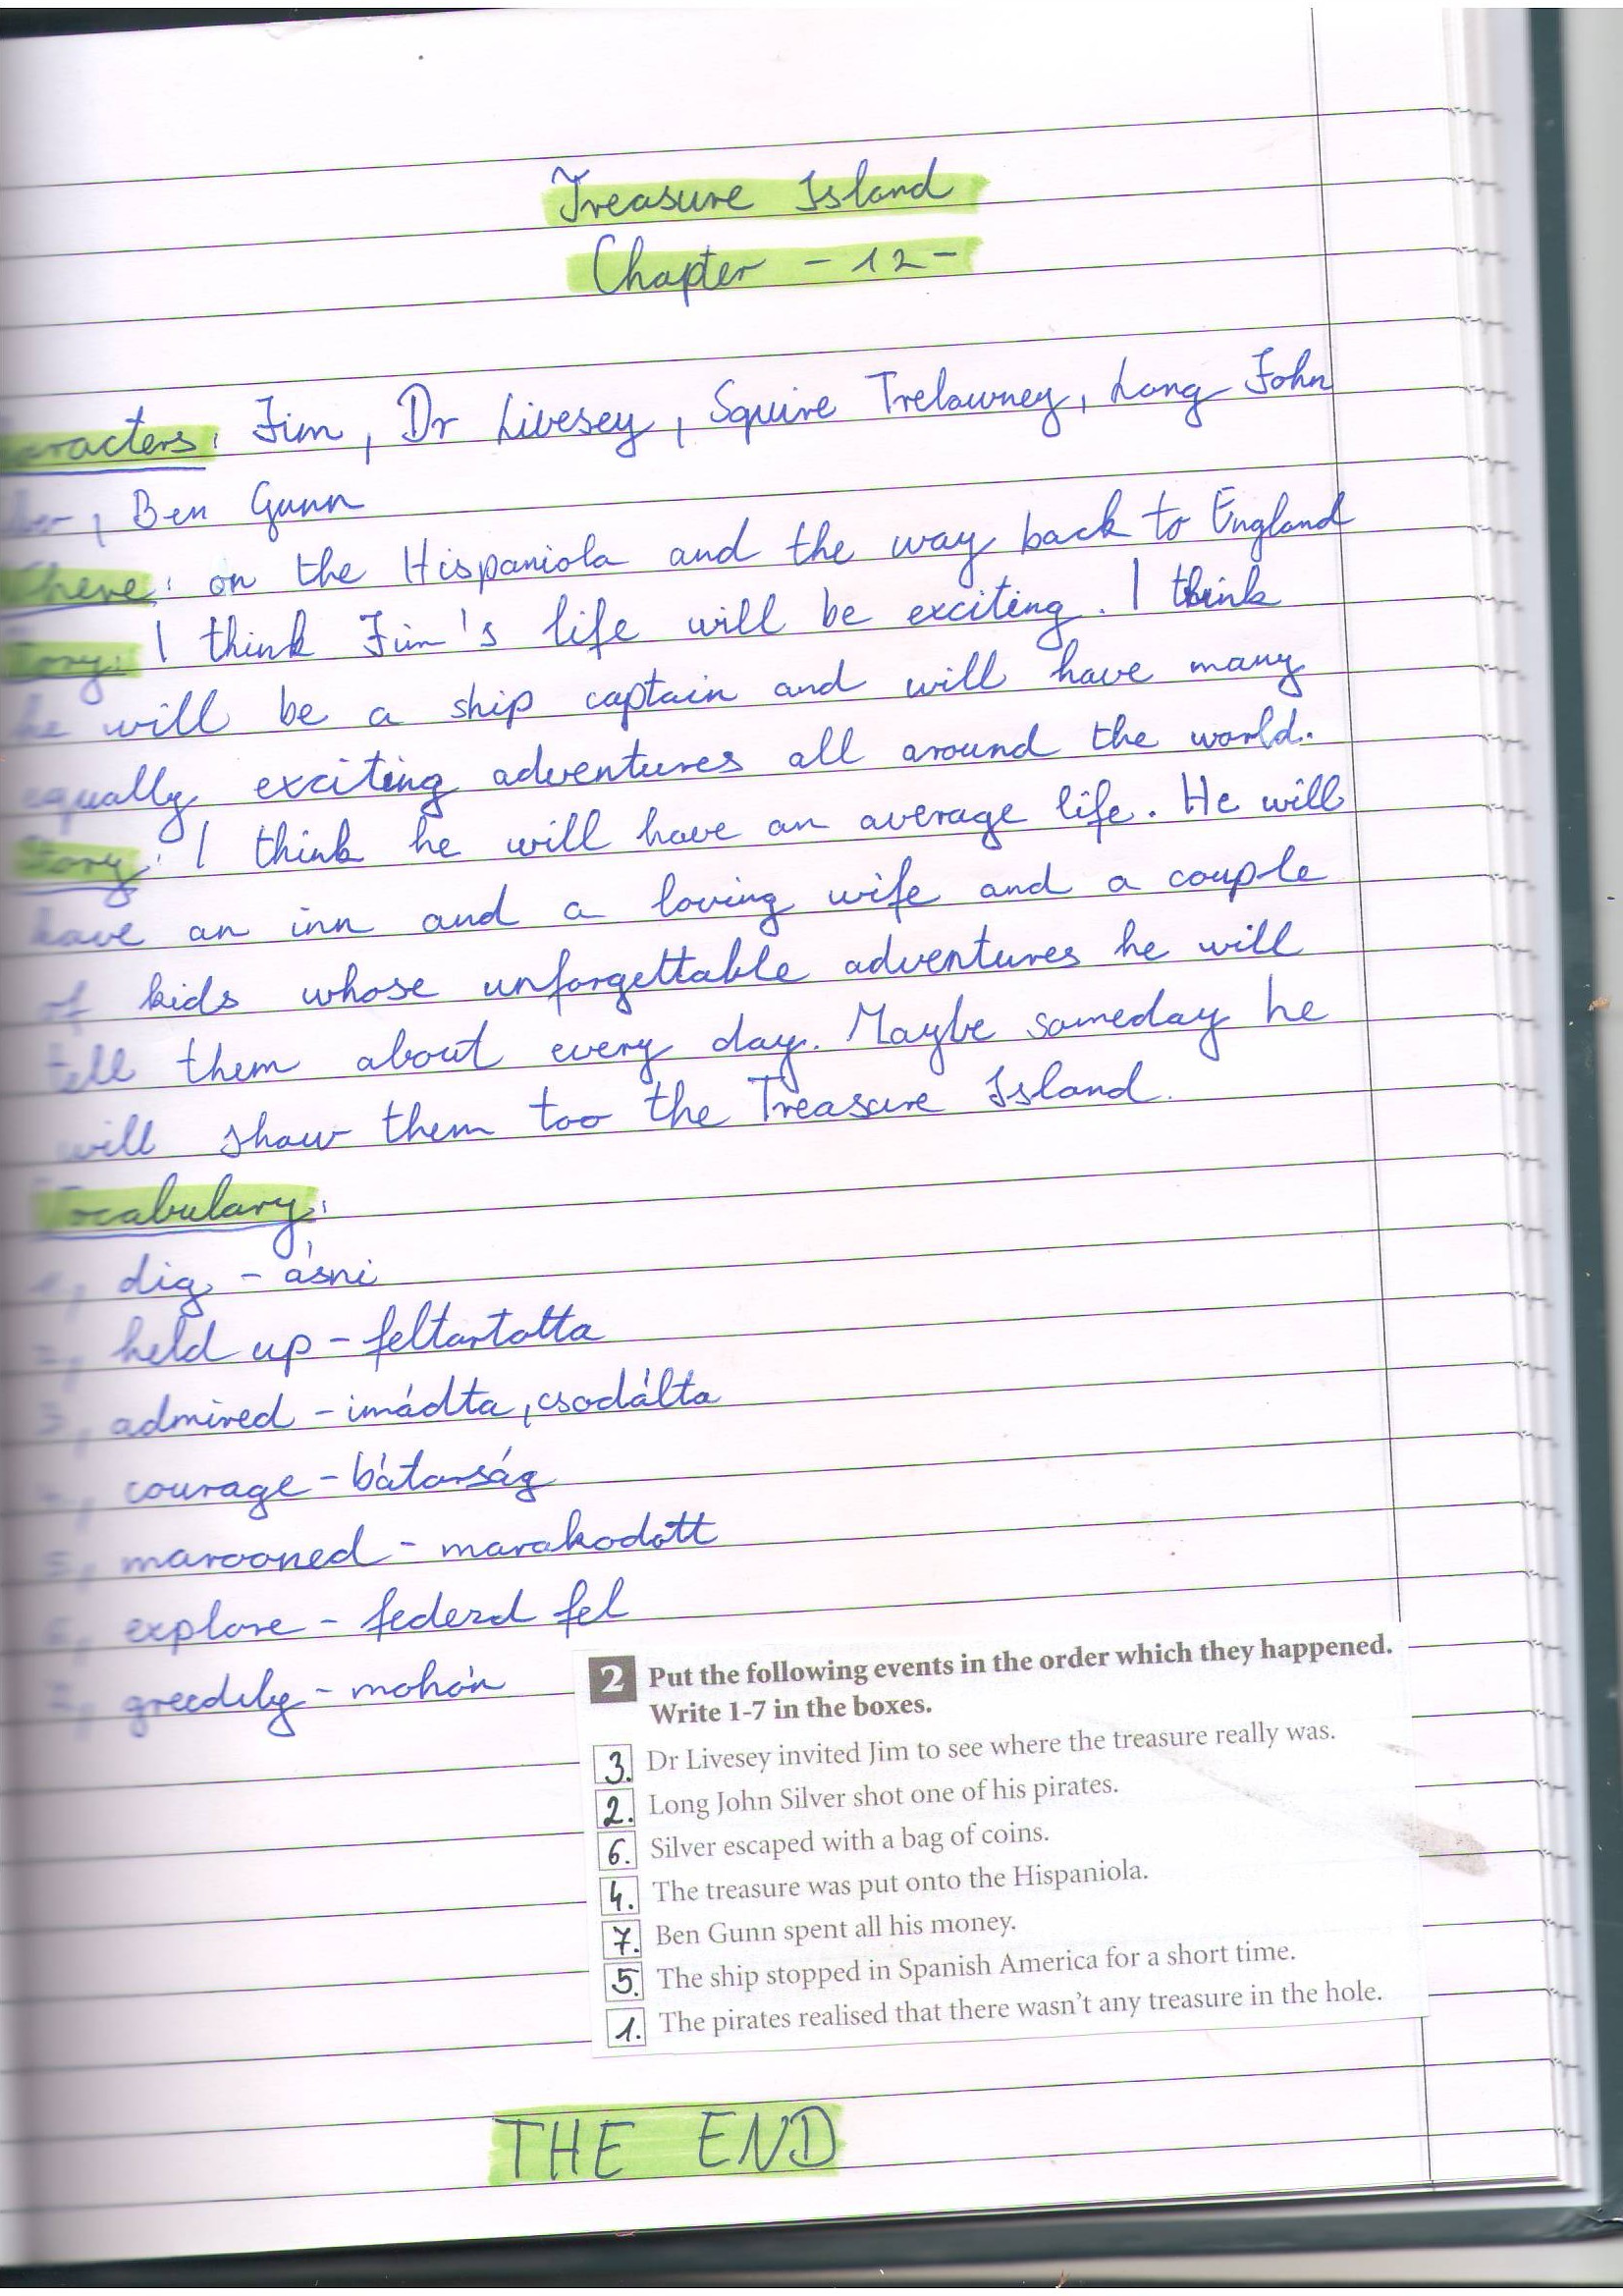 Treasure Island
Chapter - 12 -
aracters: Jim, Dr Livesey, Squire Trelawney, Long John
, Ben Gunn
here: on the Hispaniola and the way back to England
tory: I think Jim's life will be exciting. I think
he will be a ship captain and will have many
equally exciting adventures all around the world.
Story: I think he will have an average life. He will
have an inn and a loving wife and a couple
of kids whose unforgettable adventures he will
tell them about every day. Maybe someday he
will show them too the Treasure Island.
Vocabulary:
1, dig - ásni
2, held up - feltartotta
3, admired - imádta, csodálta
4, courage - bátorság
5, marooned - marakodott
6, explore - federzd fel
7, greedily - mohón
2 Put the following events in the order which they happened.
Write 1-7 in the boxes.
3. Dr Livesey invited Jim to see where the treasure really was.
2. Long John Silver shot one of his pirates.
6. Silver escaped with a bag of coins.
4. The treasure was put onto the Hispaniola.
7. Ben Gunn spent all his money.
5. The ship stopped in Spanish America for a short time.
1. The pirates realised that there wasn't any treasure in the hole.
THE END